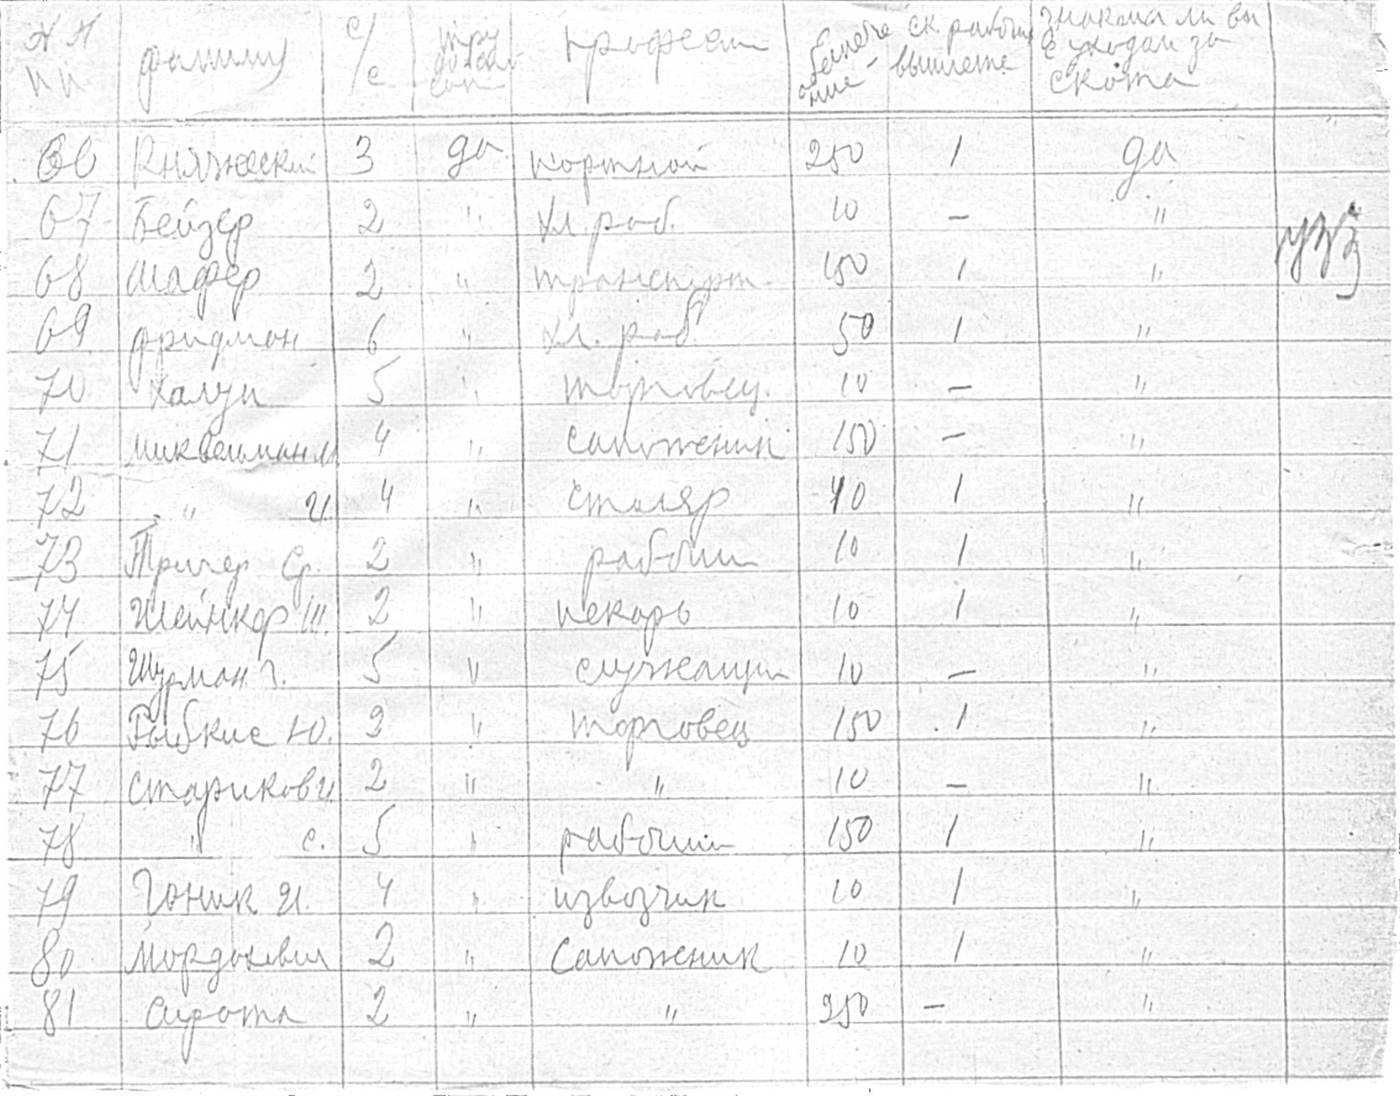 NN пп фамилия с/с трудоспособн професси обеспечение ск. рабочих вышлете знакома ли вы с уходам за скота
66 3 да портной 250 1 да
67 Бейзер 2 " хл. раб. 10 — "
68 Шафер 2 " транспорт. 150 1 "
69 Фридман 6 " хл. раб. 50 1 "
70 Халуп 5 " торговец. 10 — "
71 4 " сапоженик 150 — "
72 " И. 4 " столяр 40 1 "
73 Тричер Ср. 2 " рабочи 10 1 "
74 Шейнкер Ш. 2 " пекарь 10 1 "
75 Шурман Г. 5 " служащи 10 — "
76 Рыбкис Ю. 2 " торговец 150 1 "
77 Стариков И. 2 " " 10 — "
78 " с. 5 " рабочии 150 1 "
79 Гоник И. 4 " извозчик 10 1 "
80 Мордохевич 2 " Сапоженик 10 1 "
81 Сирота 2 " " 250 — "